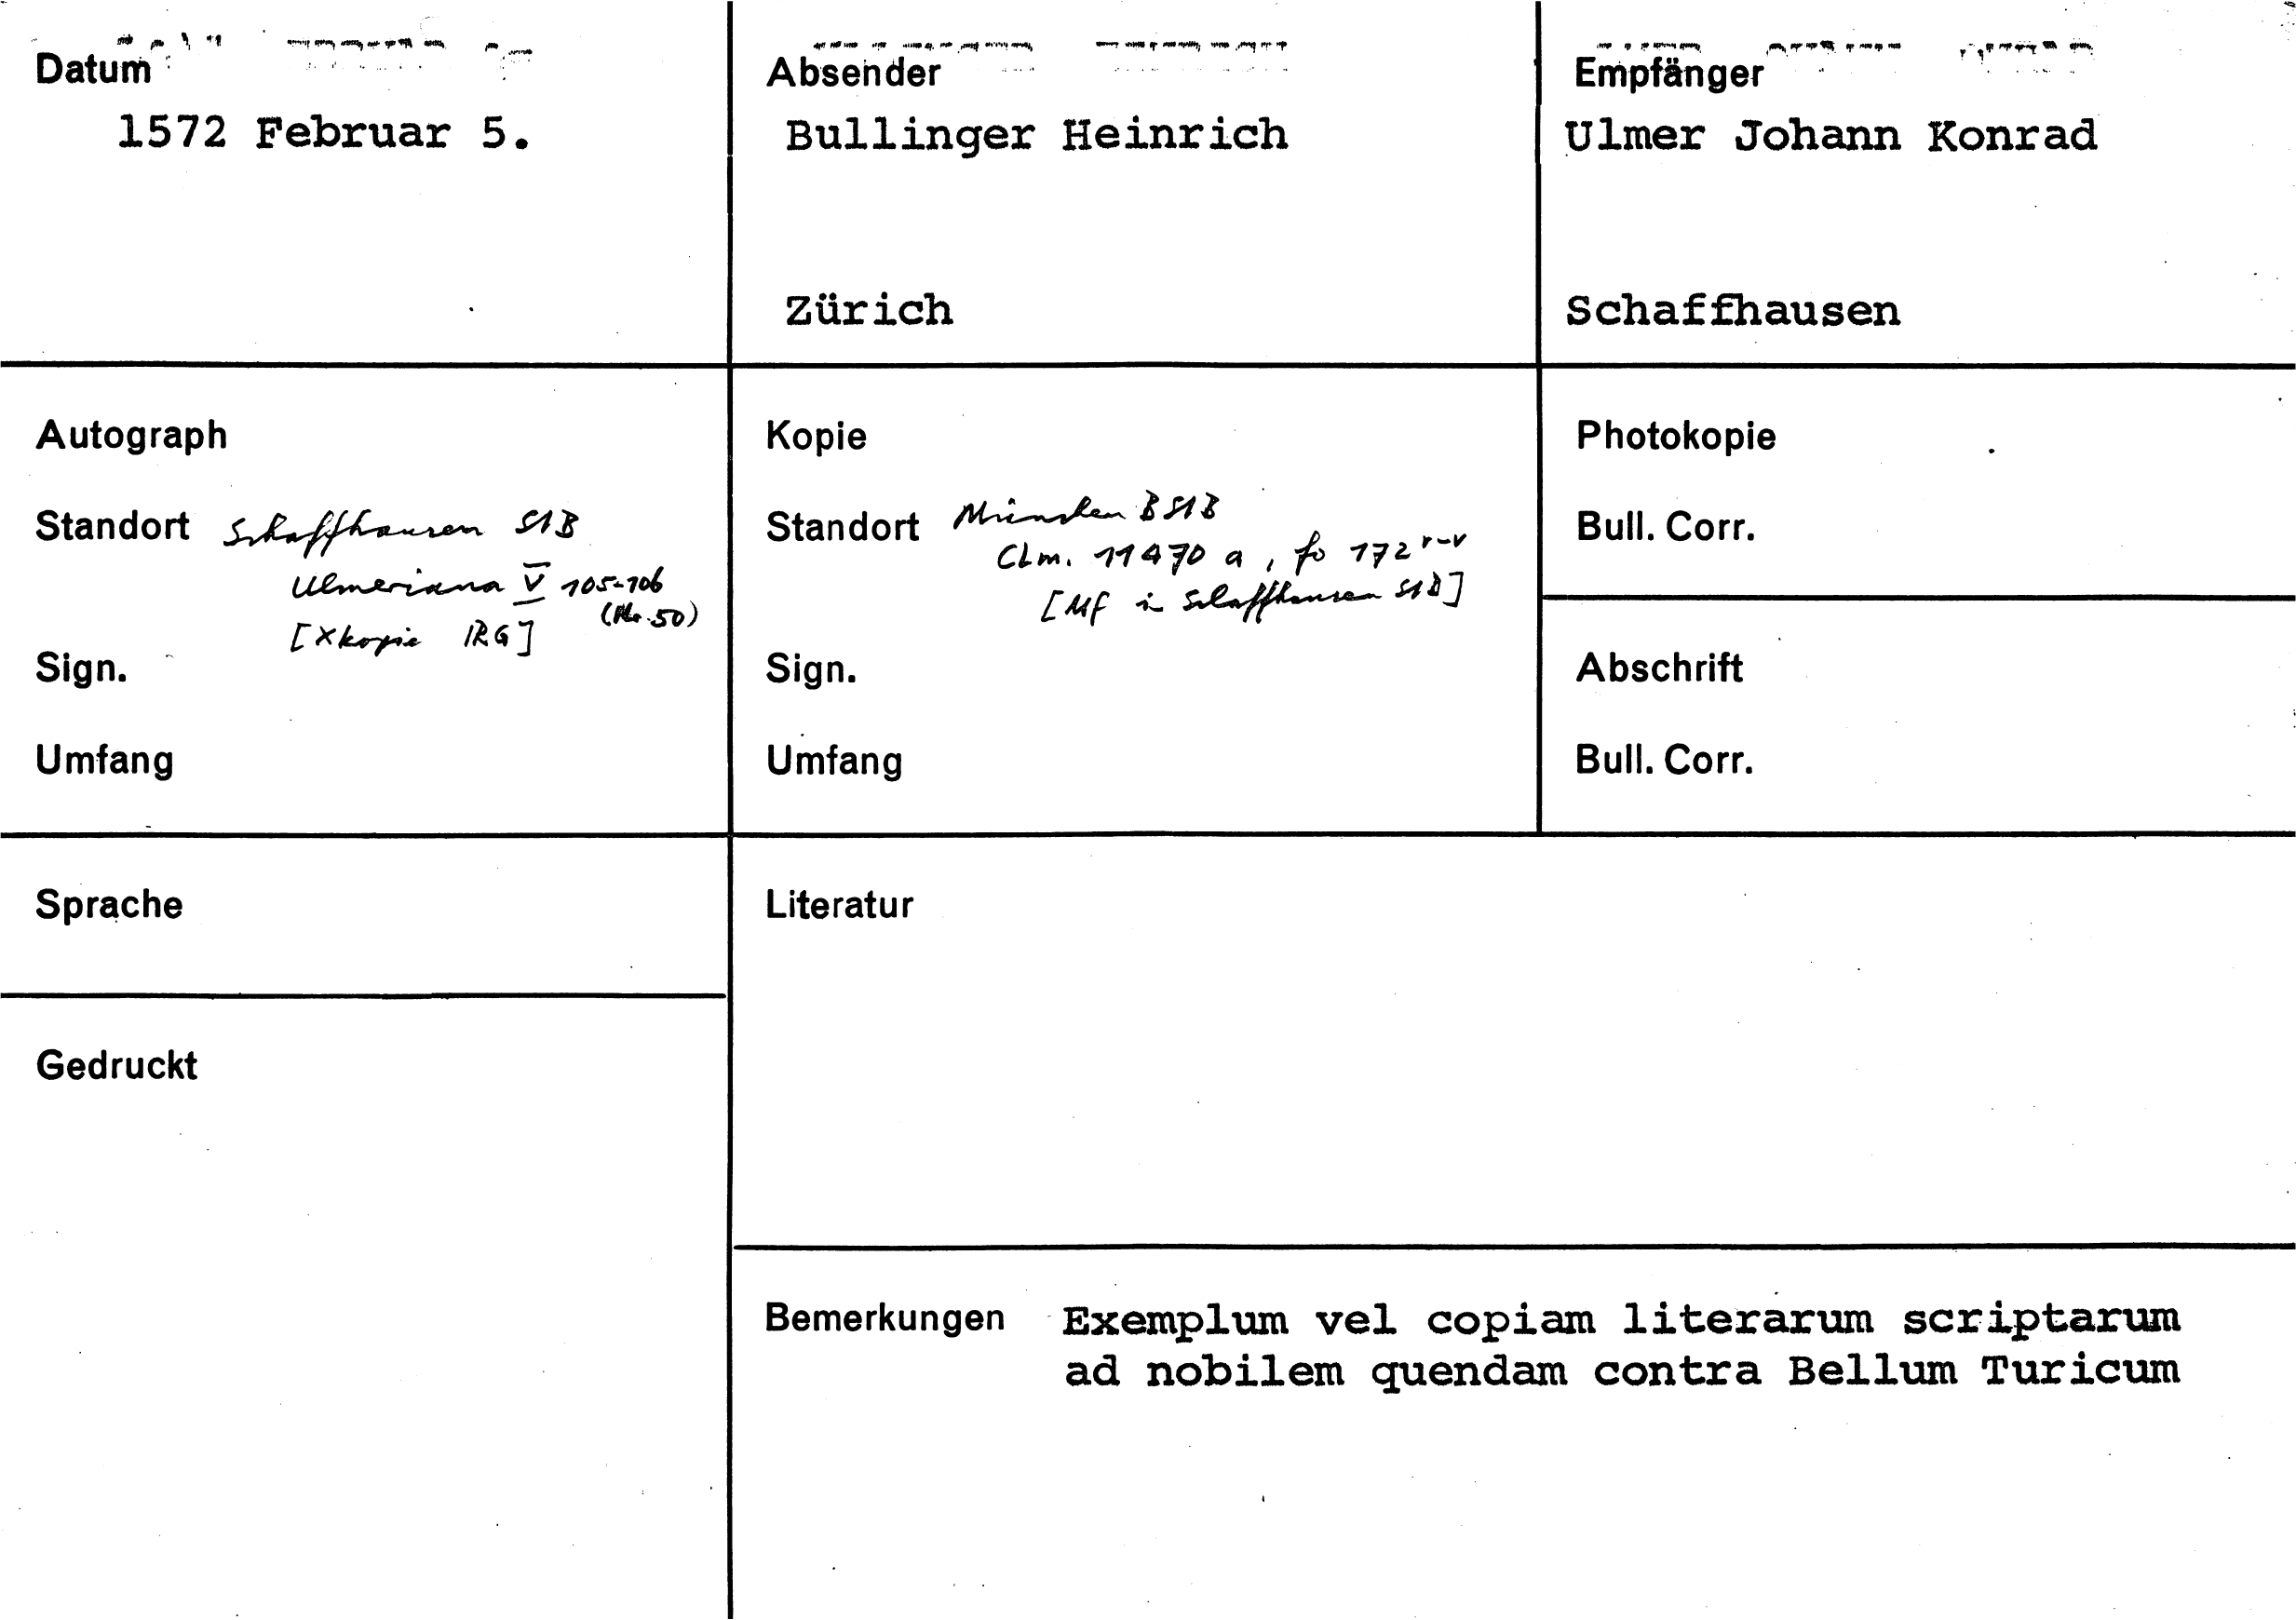 Datum
1572 Februar 5.
Absender
Bullinger Heinrich
Zürich
Empfänger
Ulmer Johann Konrad
Schaffhausen
Autograph
Standort Schaffhausen StB
Ulmeriana V 105-106
(Nr. 50)
[Xkopie IRG]
Sign.
Umfang
Kopie
Standort München BStB
Clm. 11470 a, fo 172 r-v
[MF in Schaffhausen StB]
Sign.
Umfang
Photokopie
Bull. Corr.
Abschrift
Bull. Corr.
Sprache
Gedruckt
Literatur
Bemerkungen Exemplum vel copiam literarum scriptarum
ad nobilem quendam contra Bellum Turicum